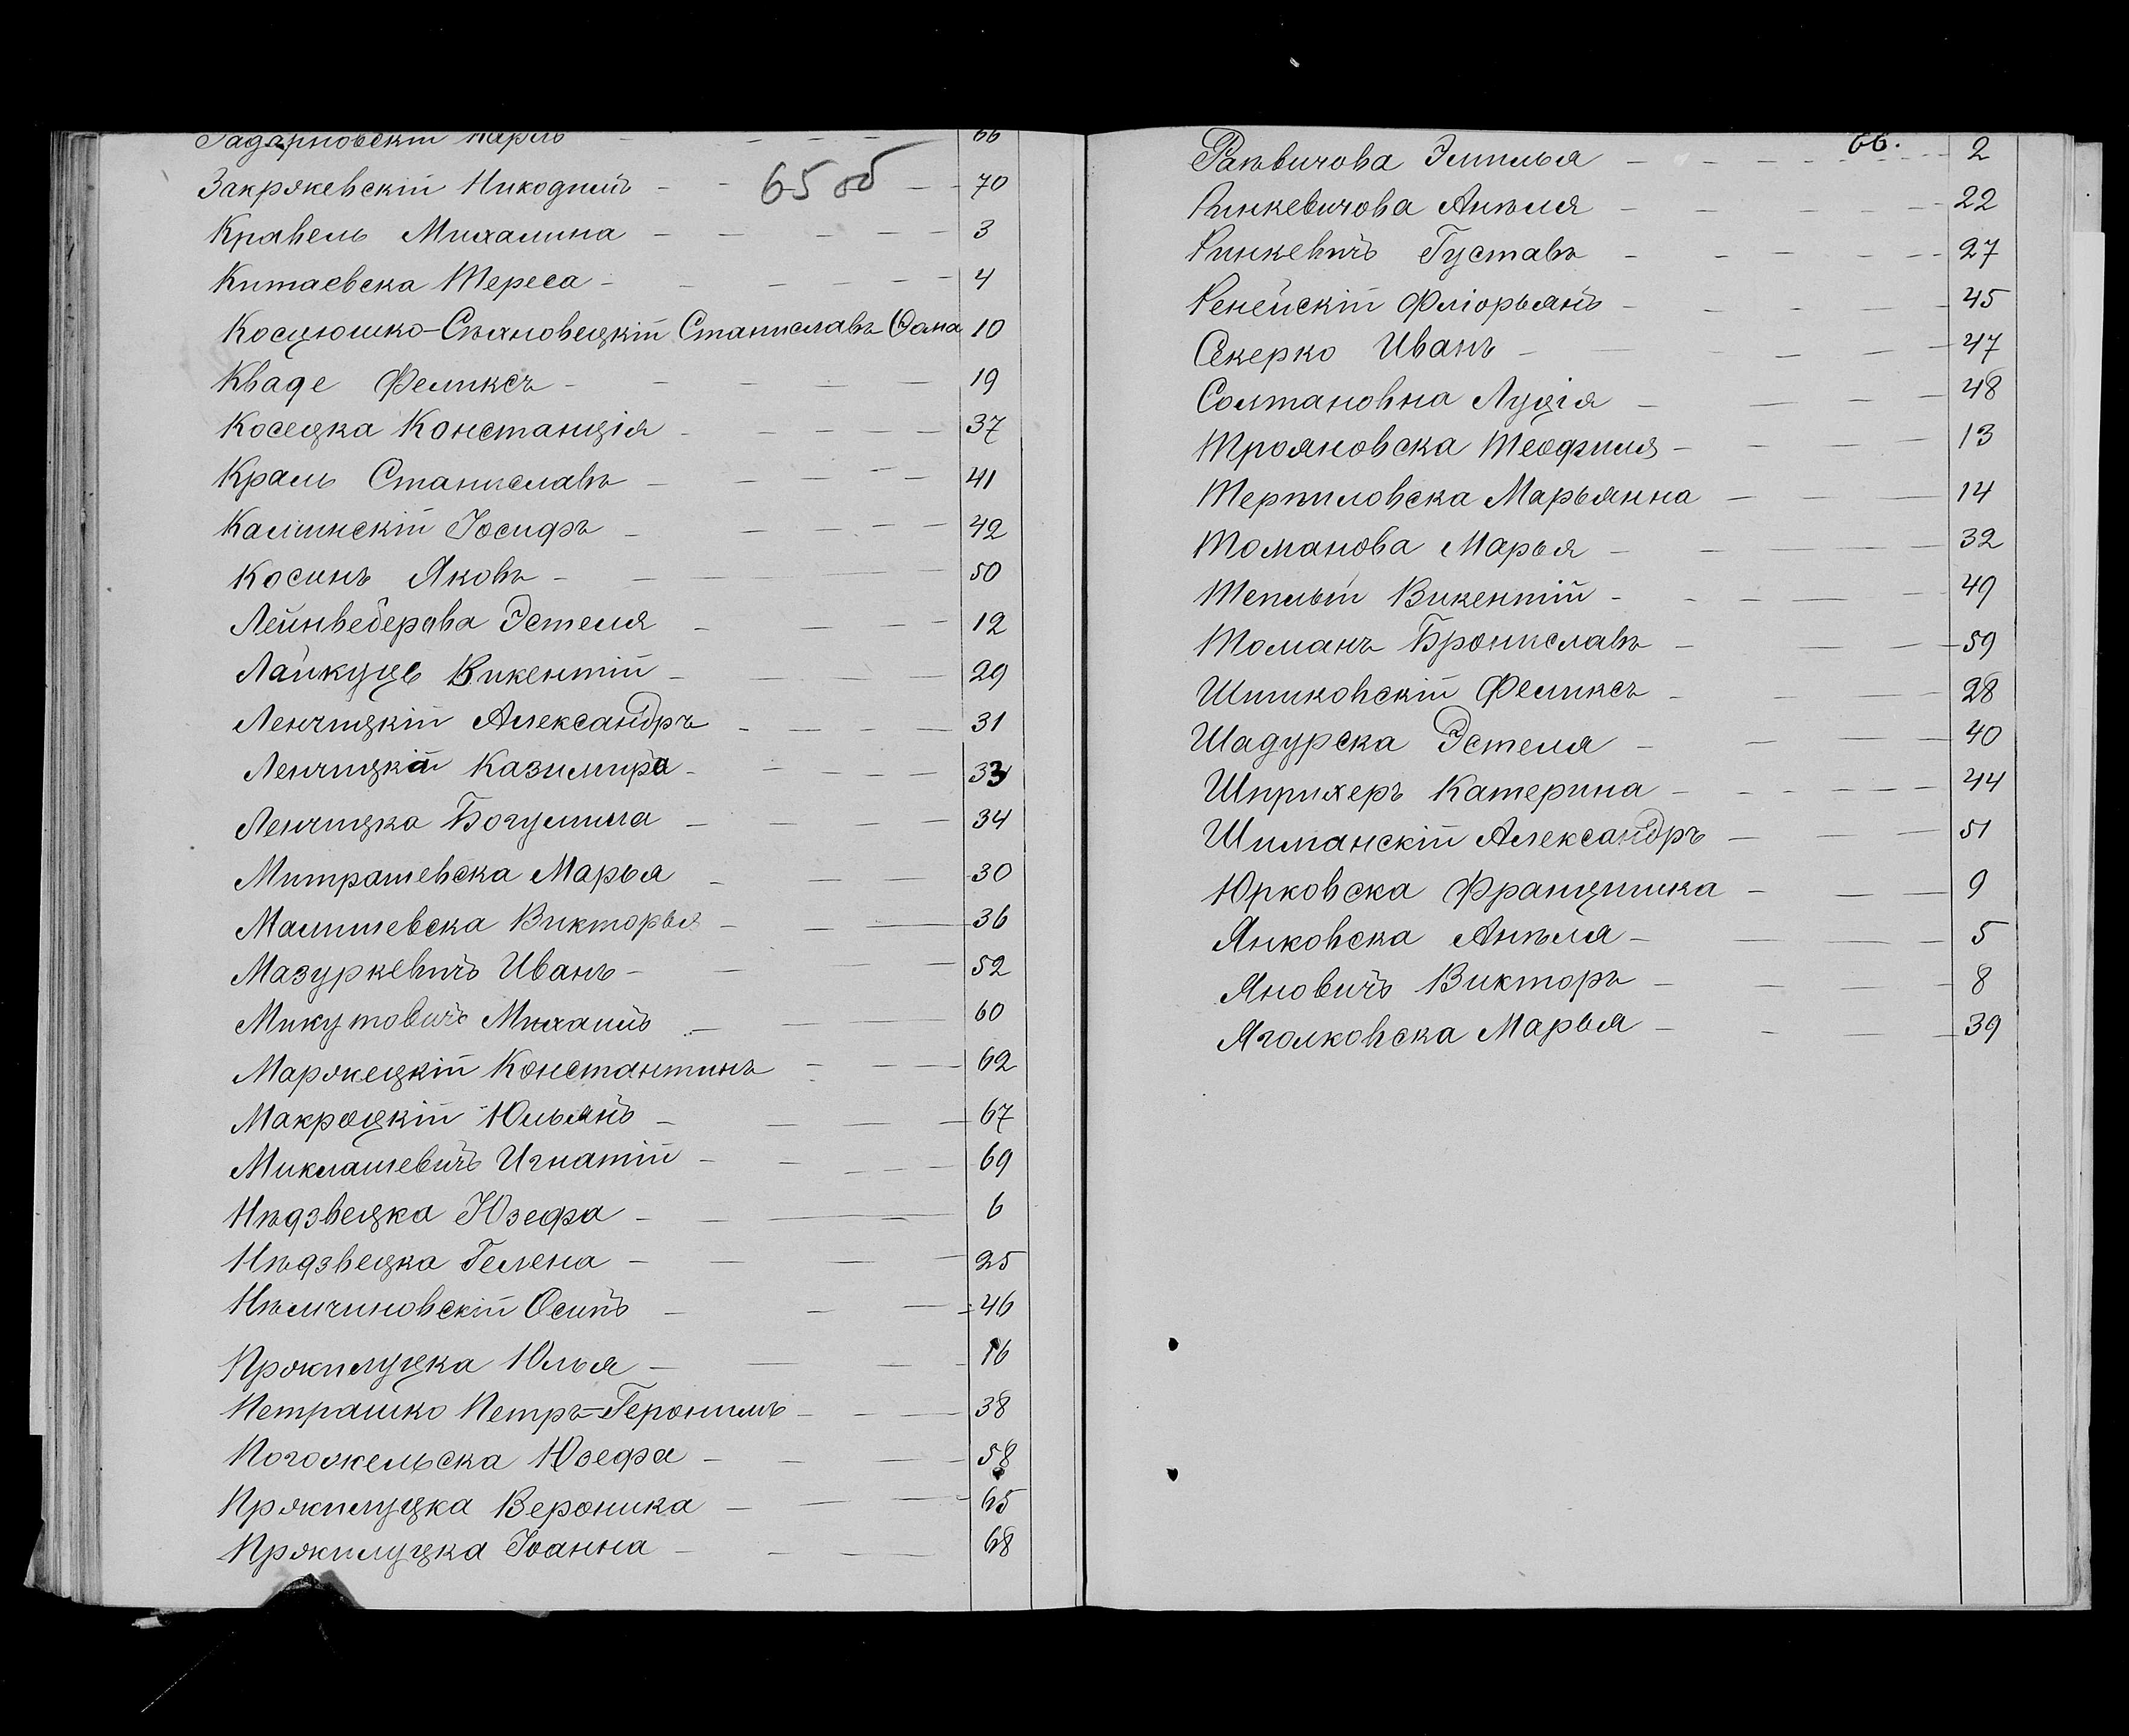 66
65 об
Закржевскій Никодимъ 70
Кравель Михалина 3
Китаевска Тереса 4
Косцюшко-Сѣхновецкій Станиславъ Ѳома 10
Кваде Феликсъ 19
Косецка Констанція 37
Краль Станиславъ 41
Калинскій Іосифъ 42
Косинъ Яковъ 50
Лейнвеберова Эстеля 12
Лайкуць Викентій 29
Ленчицкій Александръ 31
Ленчицкая Казимира 33
Ленчицка Богумила 34
Митрашевска Марья 30
Малишевска Викторья 36
Мазуркевичъ Иванъ 52
Микутовичъ Михаилъ 60
Маржецкій Константинъ 62
Макроцкій Юльянъ 67
Миклашевичъ Игнатій 69
Нѣдзвецка Юзефа 6
Нѣдзвецка Гелена 25
Нѣмчиновскій Осипъ 46
Пржилуцка Юлья 16
Петрашко Петръ-Геронимъ 38
Погожельска Юзефа 58
Пржилуцка Вероника 65
Пржилуцка Іоанна 68
66.
Эмилья 2
Ринкевичова Анѣля 22
Ринкевичъ Густавъ 27
Ренейскій Фліорьянъ 45
Секерко Иванъ 47
Солтановна Луція 48
Трояновска Теофиля 13
Терпиловска Марьянна 14
Томанова Марья 32
Теплый Викентій 49
Томанъ Брониславъ 59
Шишковскій Феликсъ 28
Шадурска Эстеля 40
Шприхеръ Катерина 44
Шиманскій Александръ 51
Юрковска Францишка 9
Янковска Анѣля 5
Яновичъ Викторъ 8
Яголковска Марья 39